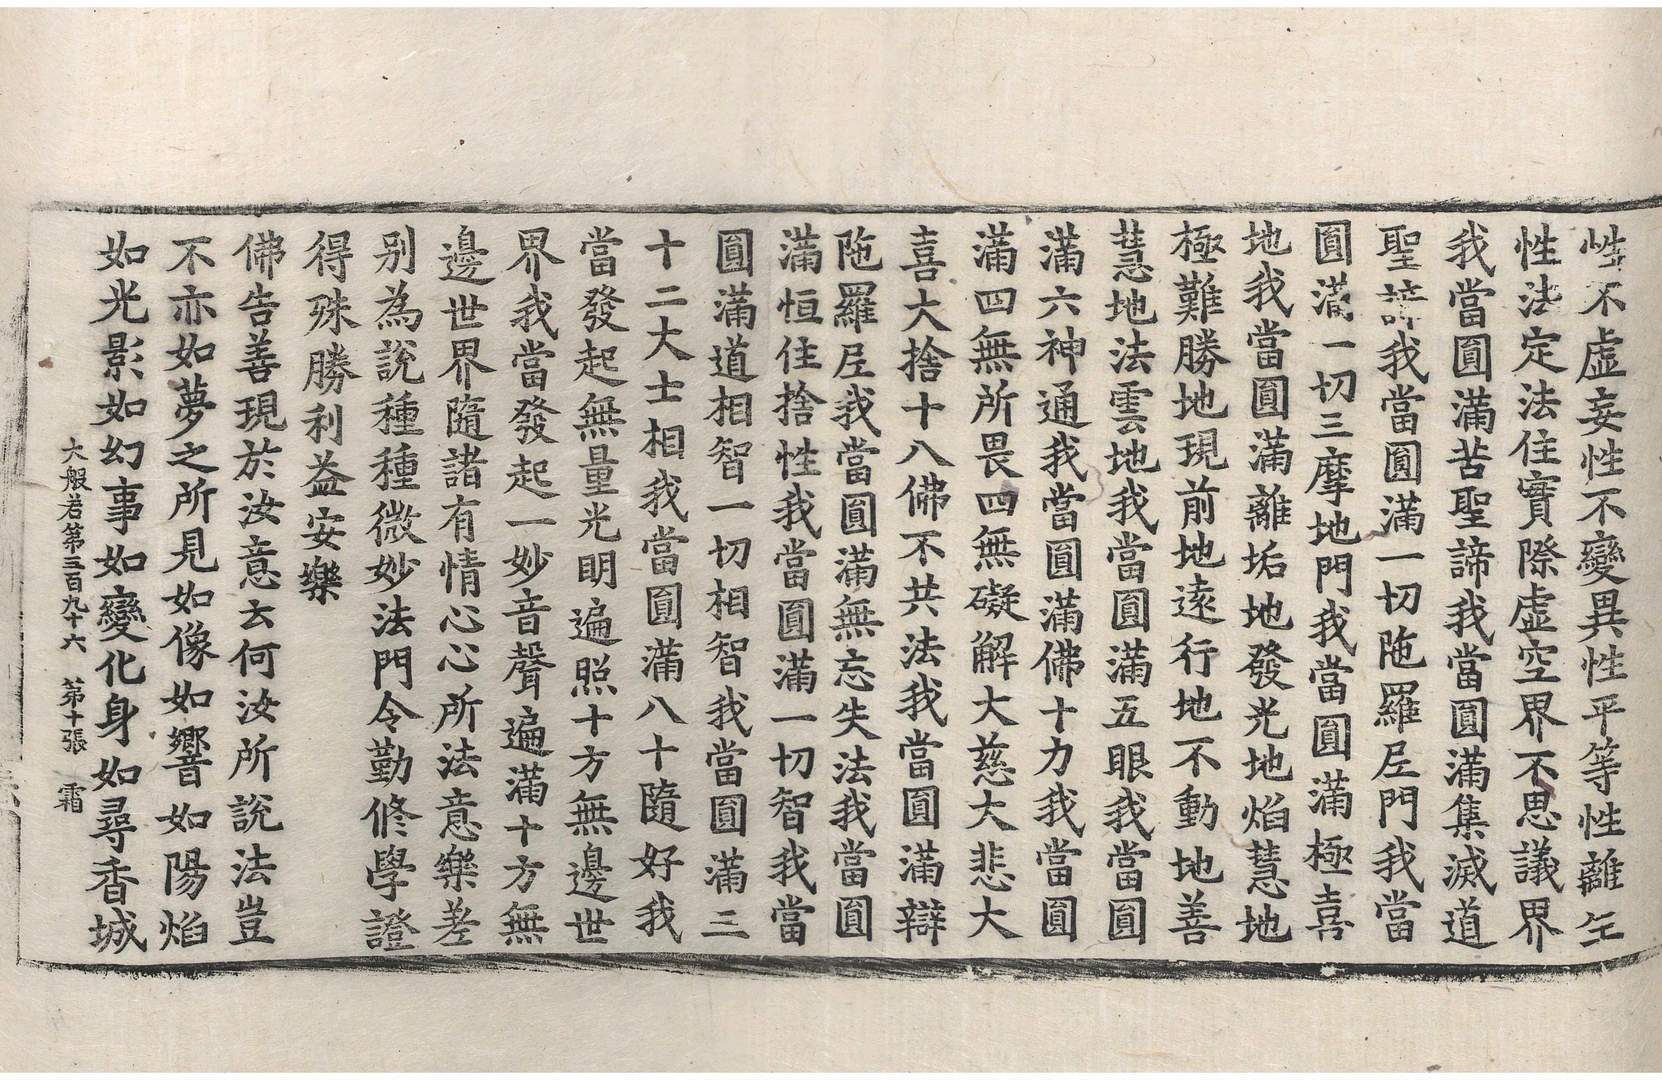 性不虛妄性不變異性平等性離生
性法定法住實際虛空界不思議界
我當圓滿苦聖諦我當圓滿集滅道
聖諦我當圓滿一切陁羅尼門我當
圓滿一切三摩地門我當圓滿極喜
地我當圓滿離垢地發光地焰慧地
極難勝地現前地遠行地不動地善
慧地法雲地我當圓滿五眼我當圓
滿六神通我當圓滿佛十力我當圓
滿四無所畏四無礙解大慈大悲大
喜大捨十八佛不共法我當圓滿辯
陁羅尼我當圓滿無忘失法我當圓
滿恒住捨性我當圓滿一切智我當
圓滿道相智一切相智我當圓滿三
十二大士相我當圓滿八十隨好我
當發起無量光明遍照十方無邊世
界我當發起一妙音聲遍滿十方無
邊世界隨諸有情心心所法意樂差
別為說種種微妙法門令勤修學證
得殊勝利益安樂
佛告善現於汝意云何汝所說法豈
不亦如夢之所見如像如響如陽焰
如光影如幻事如變化身如尋香城
大般若第三百九十六 第十張 霜